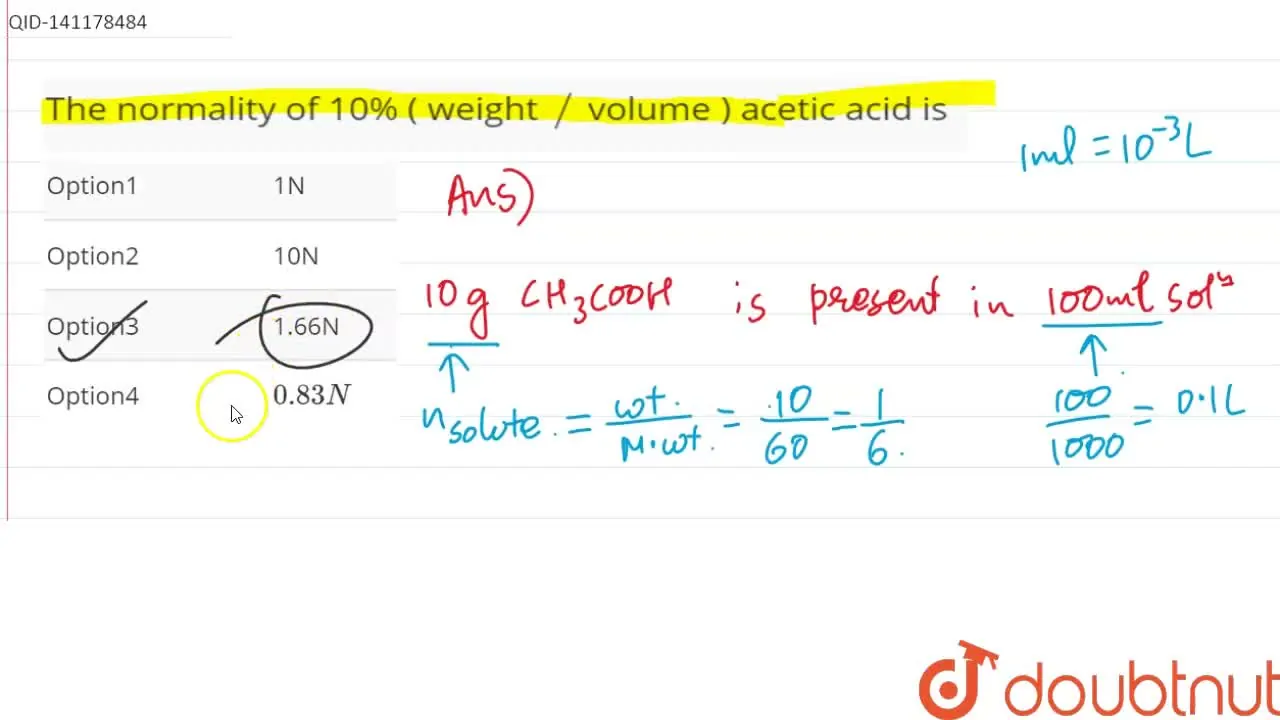 QID-141178484
The normality of 10% ( weight / volume ) acetic acid is
1ml = 10⁻³L
Option1 1N
Ans)
Option2 10N
10g CH₃COOH is present in 100ml solⁿ
Option3 1.66N
Option4 0.83N
n solute = wt. / M.wt. = 10 / 60 = 1 / 6
100 / 1000 = 0.1L
doubtnut